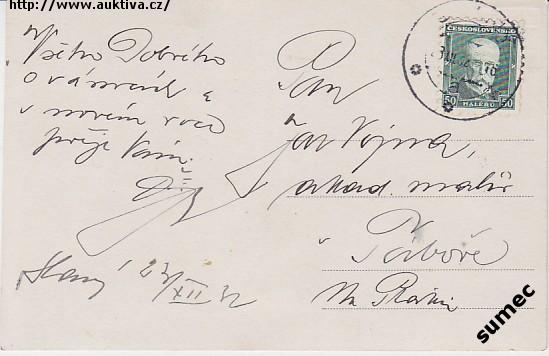 http://www.auktiva.cz/
Všeho Dobrého
o vánocích a
v novém roce
přeje Vám
Slaný 23/XII 32
Pan
Jar Vojna,
akad. malíř
v Táboře
Na Parkáni
ČESKOSLOVENSKO
50 HALÉŘŮ 50
sumec